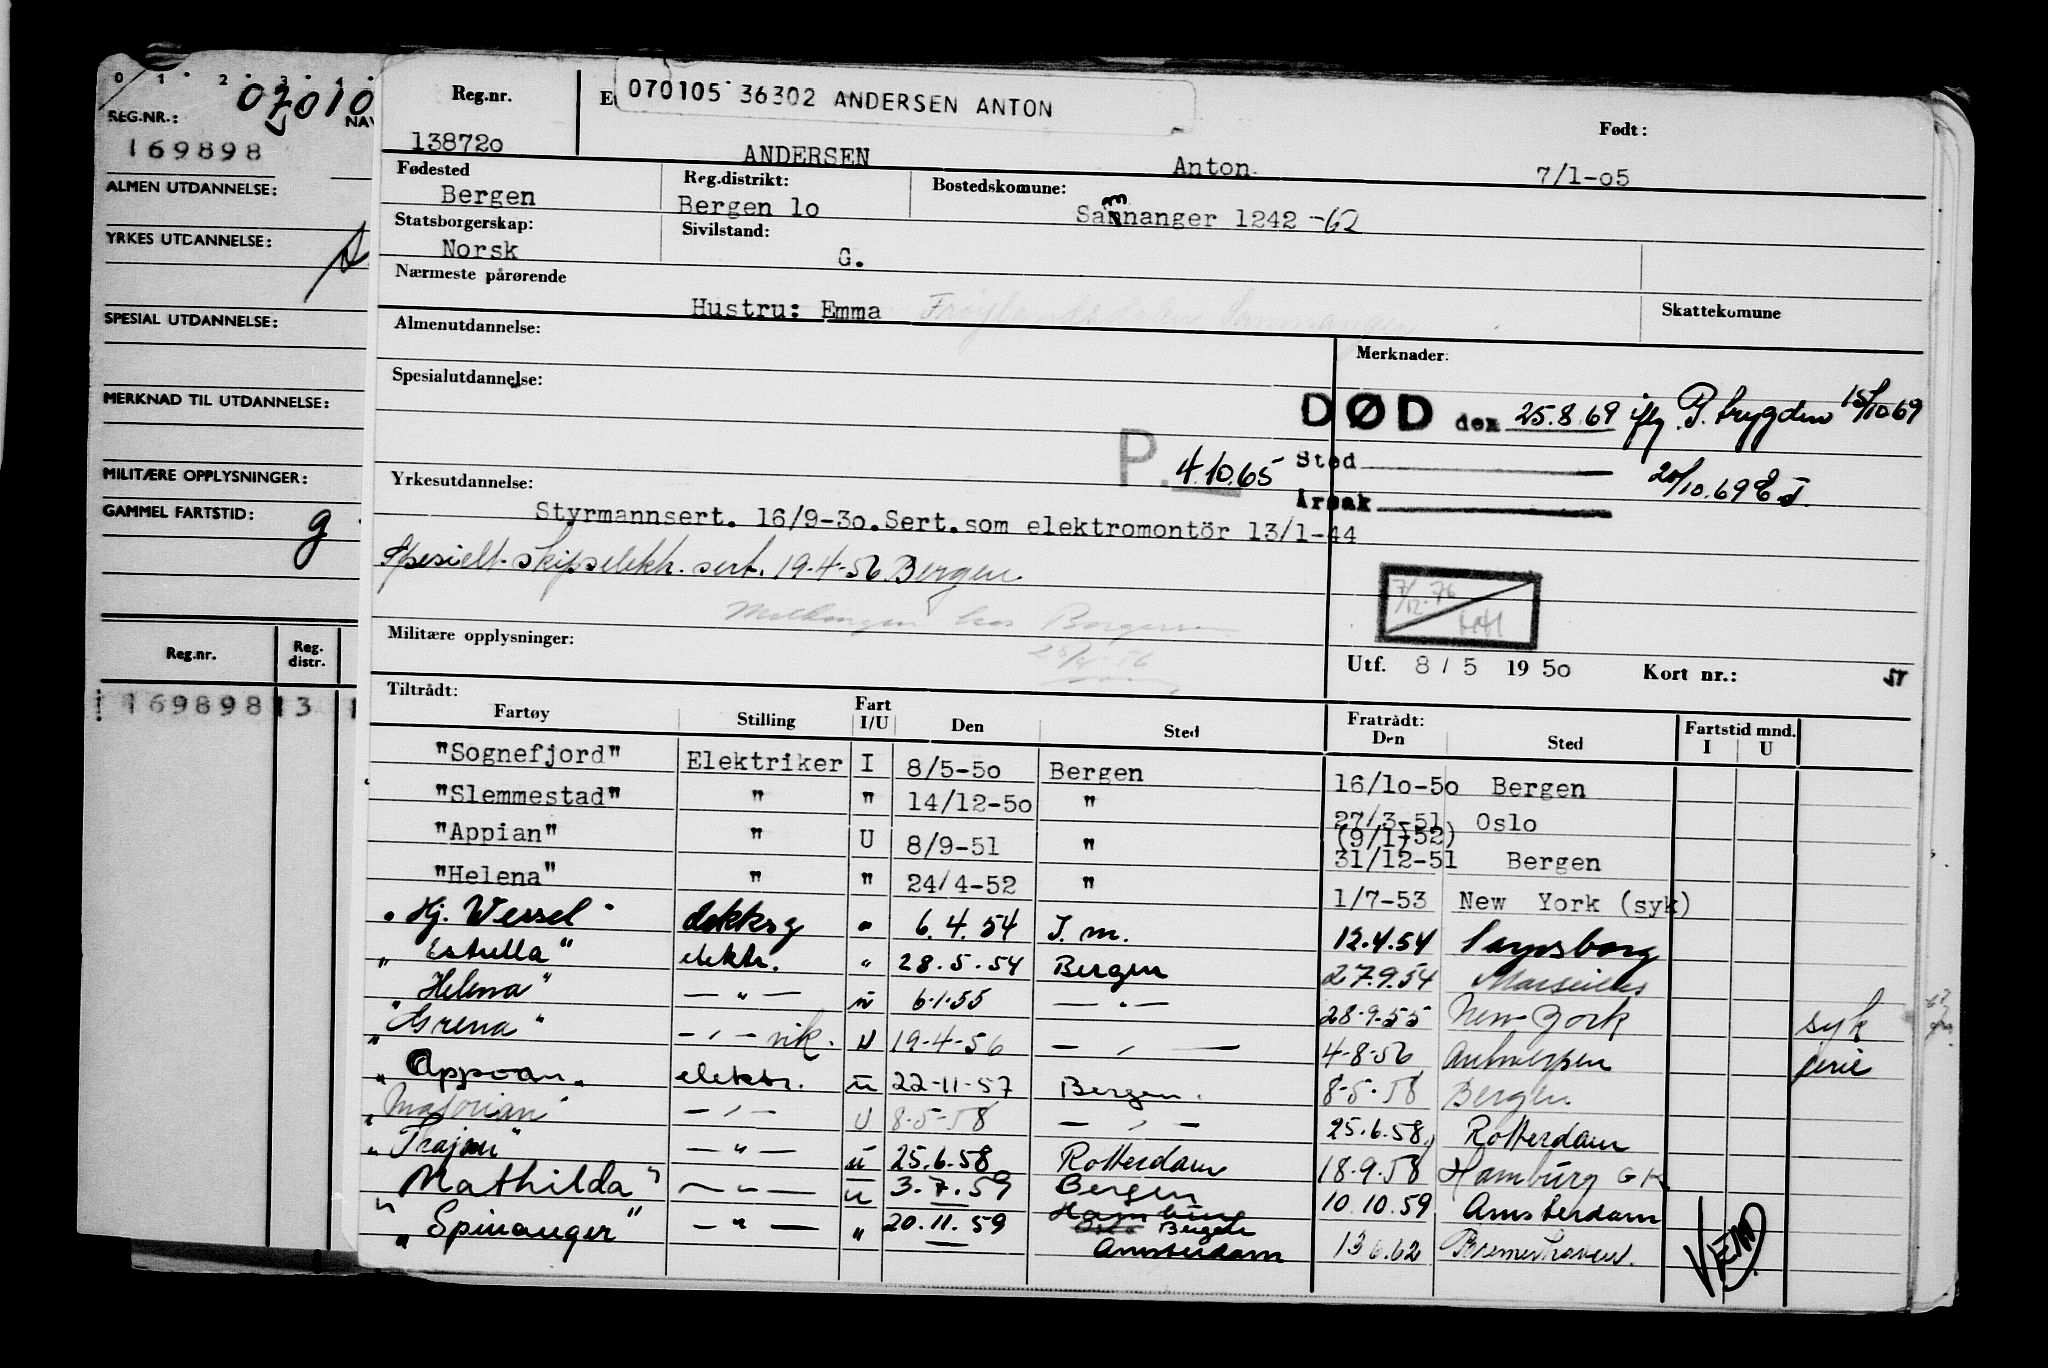 0 1 2 3 4
07010
REG.NR.: NAV
169898
ALMEN UTDANNELSE:
YRKES UTDANNELSE:
SPESIAL UTDANNELSE:
MERKNAD TIL UTDANNELSE:
MILITÆRE OPPLYSNINGER:
GAMMEL FARTSTID: g
Reg.nr. Reg. distr.
169898 13
Reg.nr. E 070105 36302 ANDERSEN ANTON Født:
138720 ANDERSEN Anton 7/1-05
Fødested Reg.distrikt: Bostedskomune:
Bergen Bergen 10 Samnanger 1242 -62
Statsborgerskap: Sivilstand:
Norsk G.
Nærmeste pårørende
Hustru: Emma Frøylandsdalen Samnanger Skattekomune
Almenutdannelse: Merknader:
Spesialutdannelse:
DØD den 25.8.69 iflg P. trygden 15/10 69
P. 4.10.65 Sted 20/10.69 EJ.
Årsak
Yrkesutdannelse:
Styrmannsert. 16/9-30. Sert. som elektromontör 13/1-44
Spesielt skipselektr. sert. 19-4-56 Bergen
7/12-76
Militære opplysninger: Utf. 8/5 1950 Kort nr.:
Tiltrådt: Fratrådt: Fartstid mnd.
Fartøy Stilling Fart I/U Den Sted Den Sted I U
"Sognefjord" Elektriker I 8/5-50 Bergen 16/10-50 Bergen
"Slemmestad" " " 14/12-50 " 27/3-51 Oslo
"Appian" " U 8/9-51 " (9/1-52) 31/12-51 Bergen
"Helena" " " 24/4-52 " 1/7-53 New York (syk)
" Hj. Wessel " dekksg " 6.4.54 T. m. 12.4.54 Sarpsborg
" Estrella " elektr. " 28.5.54 Bergen 27.9.54 Marseilles
" Helena " — " — u 6.1.55 — " — 28-9-55 New York syk
" Grena " — " — vik. U 19-4-56 — " — 4-8-56 Antwerpen ferie
" Appian " elektr. u 22-11-57 Bergen. 8-5-58 Bergen
" Majorian " — " — U 8-5-58 — " — 25.6.58 Rotterdam
" Trajan " — " — u 25.6.58 Rotterdam 18-9-58 Hamburg GK
" Mathilda " — " — u 3.7.59 Bergen 10.10.59 Amsterdam
" Spinanger " — " — " 20.11.59 Hamburg Oslo Bergen Amsterdam 13 6.62 Bremerhaven.